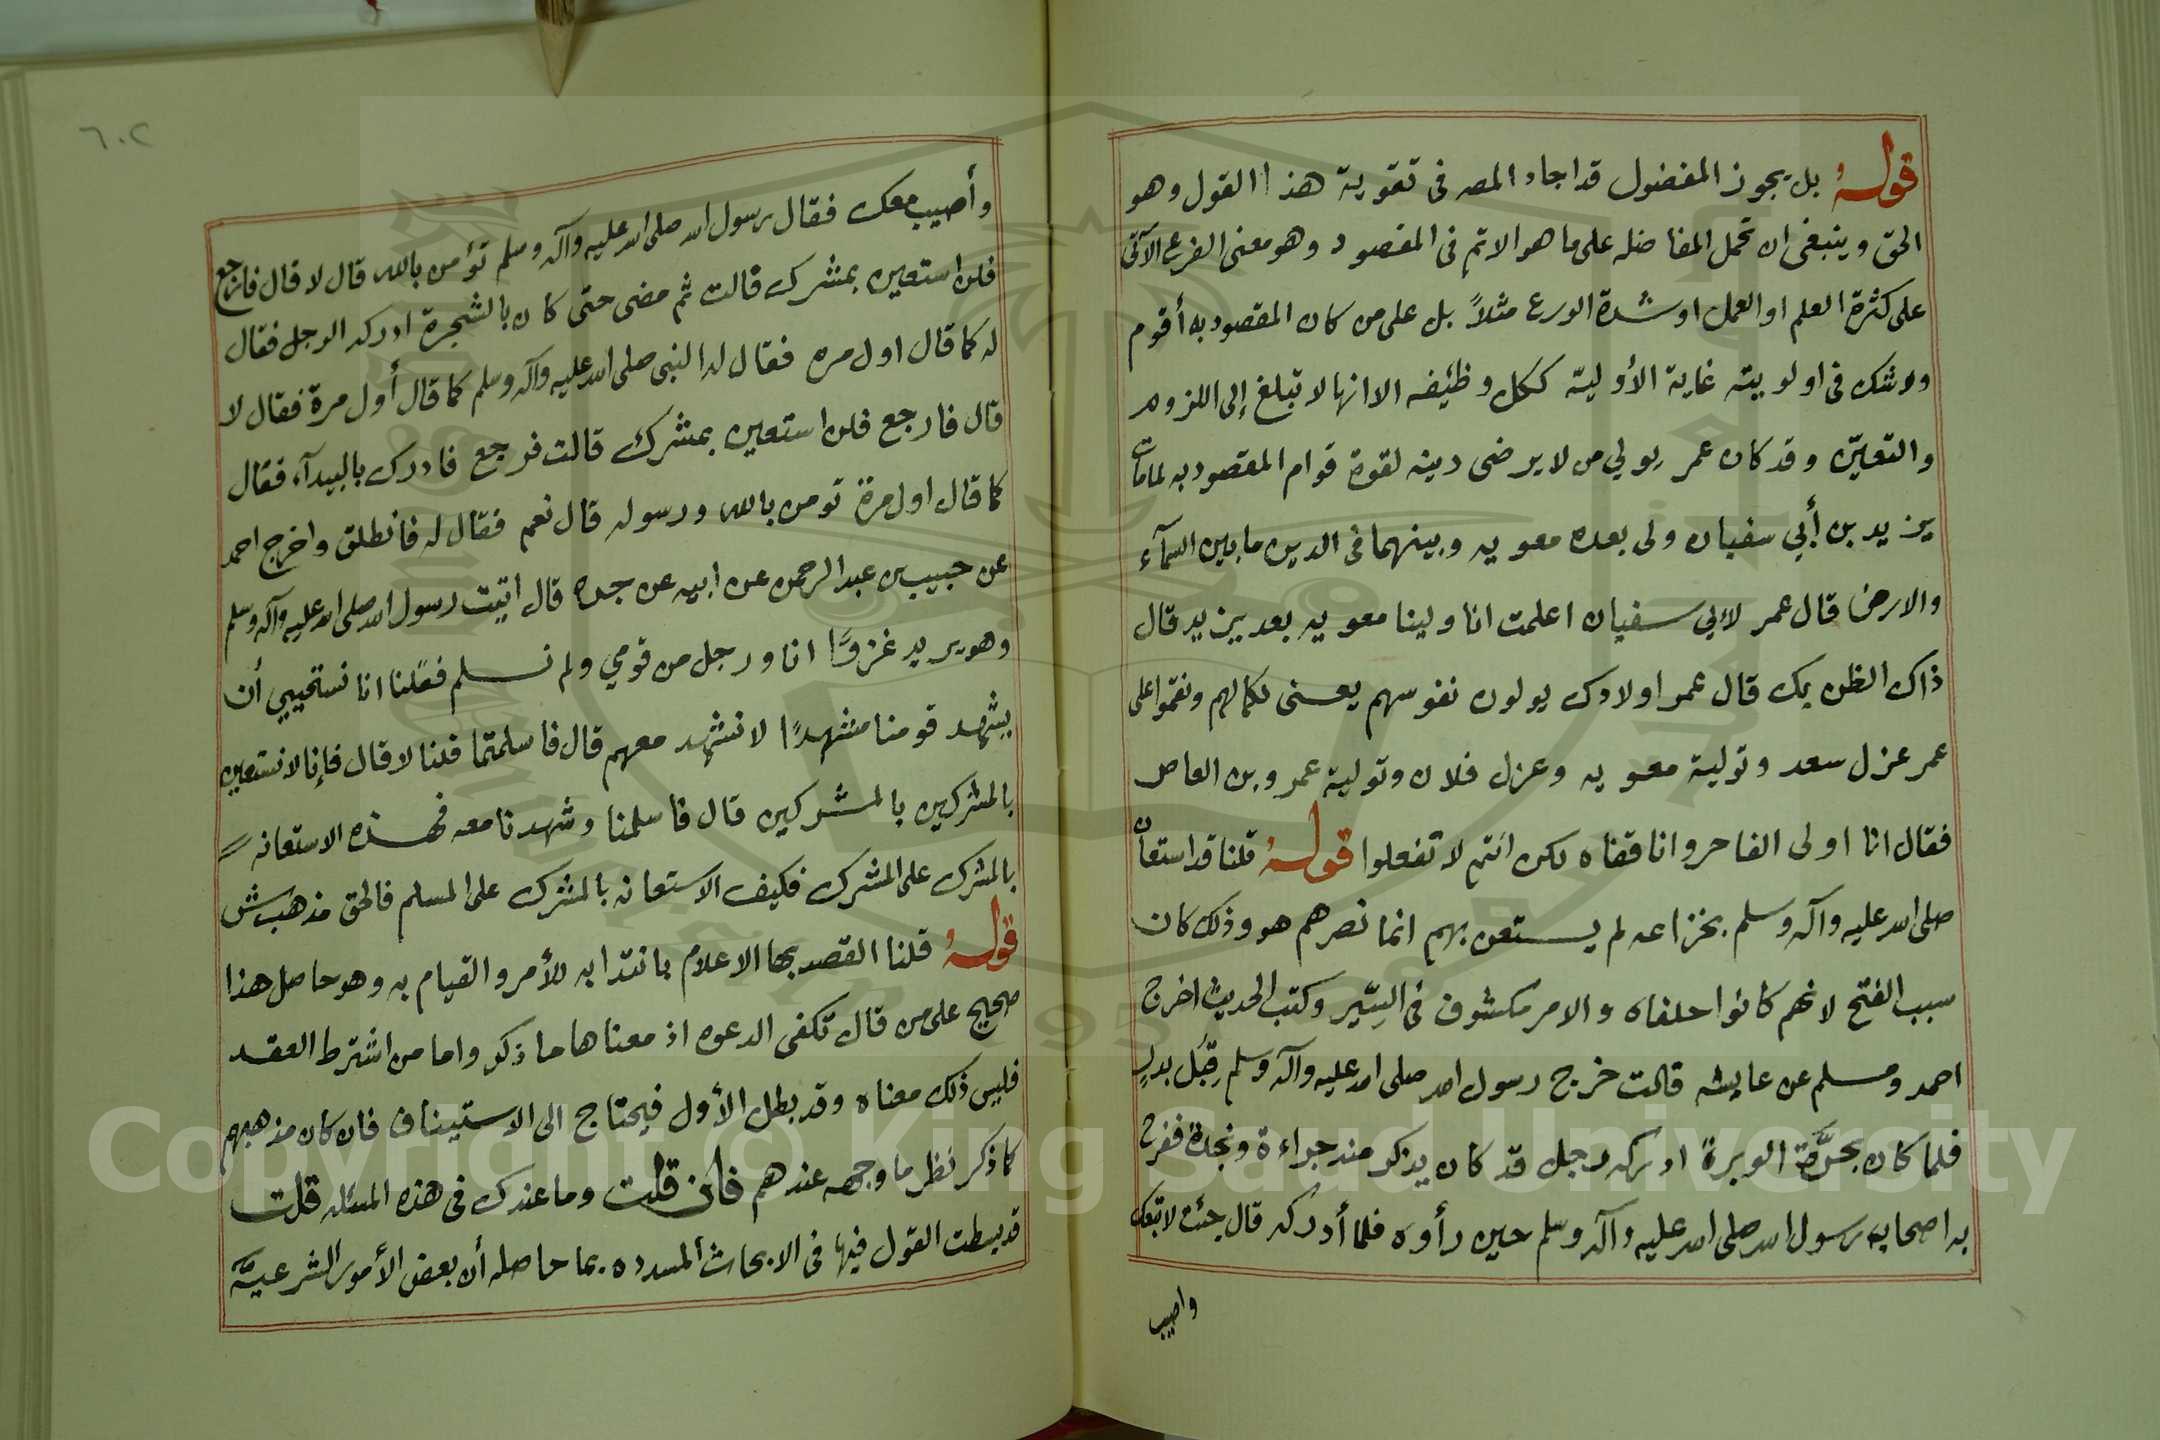 قوله بل يجوز المفضول قد اجاد المصه فى تقوية هذا القول وهو
الحق وينبغى ان تحمل المفاضله على ما هو الاتم فى المقصود وهو معنى الفرع الآتى
على كثرة العلم او العمل او شدة الورع مثلاً بل على من كان المقصود به أقوم
ولا شك فى اولويته غاية الأولية ككل وظيفه الا انها لا تبلغ إلى اللزوم
والتعيّن وقد كان عمر يولي من لا يرضى دينه لقوة قوام المقصود به لما مات
يزيد بن أبي سفيان ولى بعده معويه وبينهما فى الدين ما بين السمآء
والارض قال عمر لابي سفيان اعلمت انا ولينا معويه بعد يزيد قال
ذاك الظن بك قال عمر اولادك يولون نفوسهم يعنى لكمالهم ونقموا على
عمر عزل سعد وتولية معويه وعزل فلان وتولية عمرو بن العاص
فقال انا اولى الفاجر وانا قفاه لكن انتم لا تفعلوا قوله قلنا قد استعان
صلى الله عليه وآله وسلم بخزاعه لم يستعن بهم انما نصرهم هو وذلك كان
سبب الفتح لانهم كانوا حلفاه والامر مكشوف فى السِّيَر وكتب الحديث اخرج
احمد ومسلم عن عايشه قالت خرج رسول الله صلى الله عليه وآله وسلم قِبَل بدر
فلما كان بحَرَّة الوبرة ادركه رجل قد كان يذكر منه جراءة ونجدة ففرح
به اصحاب رسول الله صلى الله عليه وآله وسلم حين رأوه فلما أدركه قال جئت لاتبعك
واصيب
٦٠٢
وأصيب معك فقال رسول الله صلى الله عليه وآله وسلم تؤمن بالله قال لا قال فارجع
فلن استعين بمشرك قالت ثم مضى حتى كان بالشجرة ادركه الرجل فقال
له كما قال اول مره فقال له النبى صلى الله عليه وآله وسلم كما قال أول مرة فقال لا
قال فارجع فلن استعين بمشرك قالت فرجع فادرك بالبيدآء فقال
كما قال اول مرة تومن بالله ورسوله قال نعم فقال له فانطلق واخرج احمد
عن حبيب بن عبد الرحمن عن ابيه عن جده قال اتيت رسول الله صلى الله عليه وآله وسلم
وهو يريد غزوًا انا ورجل من قومي ولم نسلم فقلنا انا نستحيي أن
يشهد قومنا مشهدًا لا نشهد معهم قال فاسلمتما قلنا لا قال فإنا لا نستعين
بالمشركين بالمشركين قال فاسلمنا وشهدنا معه فهذه الاستعانه
بالمشرك على المشرك فكيف الاستعانه بالمشرك على المسلم فالحق مذهب ش
قوله قلنا القصد بها الاعلام بانتدابه للأمر والقيام به وهو حاصل هذا
صحيح على من قال تكفى الدعوه اذ معناها ما ذكر واما من اشترط العقد
فليس ذلك معناه وقد بطل الأول فيحتاج الى الاستيناف فان كان مذهبهم
كما ذكر نظر ما وجهه عندهم فان قلت وما عندك فى هذه المسئله قلت
قد بسطت القول فيها فى الابحاث المسدده بما حاصله أن بعض الأمور الشرعيَّة
Copyright © King Saud University